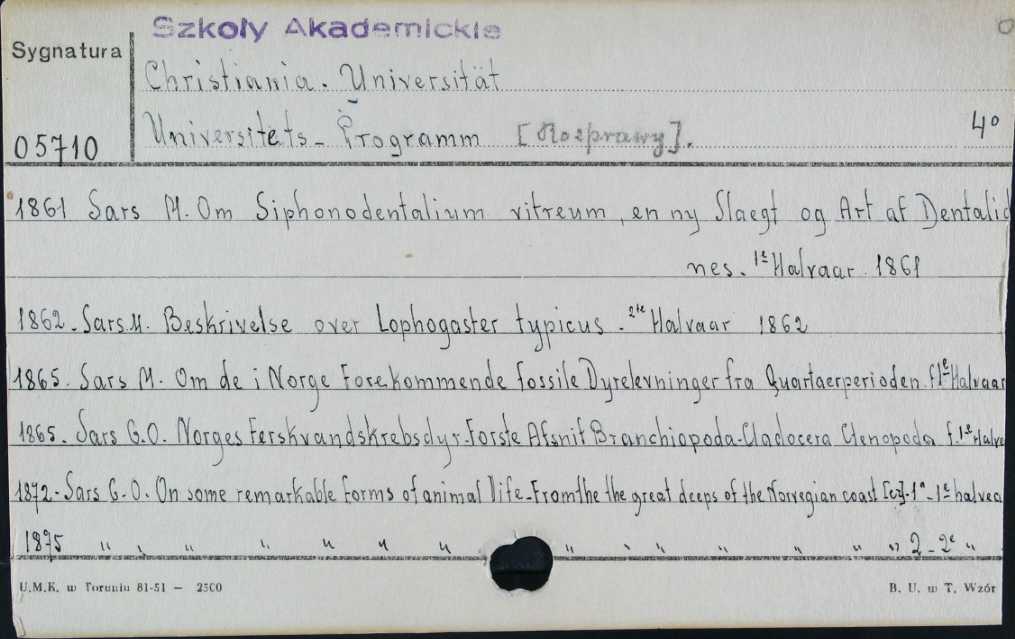 Szkoły Akademickie
Sygnatura
Christiania. Universität
Universitets-Programm [Rozprawy]. 4°
05710
1861 Sars M. Om Siphonodentalium vitreum, en ny Slaegt og Art af Dentalid
nes. 1ᵗ Halvaar 1861
1862. Sars M. Beskrivelse over Lophogaster typicus. 2ᵗᵉ Halvaar 1862
1865. Sars M. Om de i Norge Forekommende Fossile Dyrelevninger fra Quartaerperioden. f. 1ᵉ Halvaar
1865. Sars G.O. Norges Ferskvandskrebsdyr. Forste Afsnit Branchiopoda-Cladocera Ctenopoda f. 1ᵗ Halva
1872. Sars G.O. On some remarkable forms of animal life. From the the great deeps of the Norvegian coast [cz]. 1ᵃ - 1ᵉ halvea
1875 " " " " " " " " " " " " " " 2 - 2ᵉ "
U.M.K. w Toruniu 81-51 — 2500
B. U. w T. Wzór